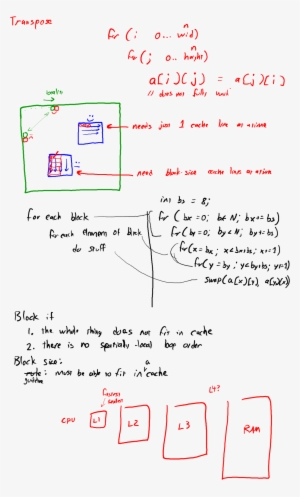 Transpose
for (i 0... n
for (j 0... n
a[i][j] = a[j][i]
// does not fully work
needs just 1 cache line at a time
need block size cache lines at a time
int bs = 8;
for each block
for (bx = 0; bx < N; bx += bs)
for (by = 0; by < N; by += bs)
for each element of block
for (x = bx; x < bx+bs; x += 1)
do stuff
for (y = by; y < by+bs; y += 1)
swap(a[x][y], a[y][x])
Block if
1. the whole thing does not fit in cache
2. there is no spatially-local loop order
Block size:
a
must be able to fit in ^ cache
fastest
L4?
CPU
L1
L2
L3
RAM